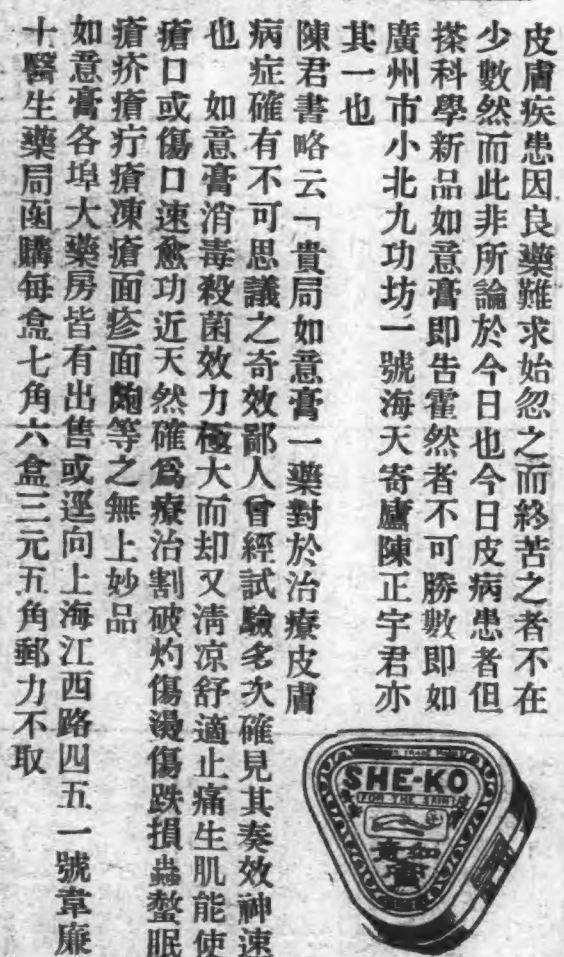 皮膚疾患因良藥難求始忽之而終苦之者不在
少數然而此非所論於今日也今日皮病患者但
搽科學新品如意膏即告霍然者不可勝數即如
廣州市小北九功坊一號海天寄廬陳正宇君亦
其一也
陳君書略云「貴局如意膏一藥對於治療皮膚
病症確有不可思議之奇效鄙人曾經試驗多次確見其奏效神速
也 如意膏消毒殺菌效力極大而却又淸凉舒適止痛生肌能使
瘡口或傷口速愈功近天然確爲療治割破灼傷燙傷跌損蟲螫眠
瘡疥瘡疔瘡凍瘡面疹面皰等之無上妙品
如意膏各埠大藥房皆有出售或逕向上海江西路四五一號韋廉
士醫生藥局函購每盒七角六盒三元五角郵力不取
TRADE
SHE-KO
FOR THE SKIN
如意
膏